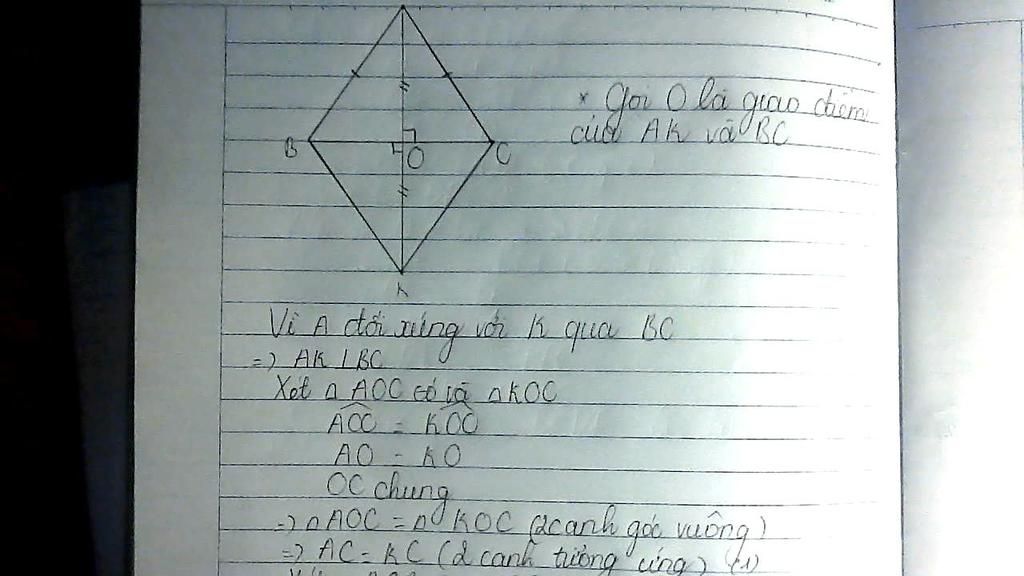 * Gọi O là giao điểm
của AK và BC
B
O
C
K
Vì A đối xứng với K qua BC
=> AK ⊥ BC
Xét △ AOC có và △KOC
AOC = KOC
AO = KO
OC chung
=> △ AOC = △ KOC (2 cạnh góc vuông)
=> AC = KC (2 cạnh tương ứng) (1)